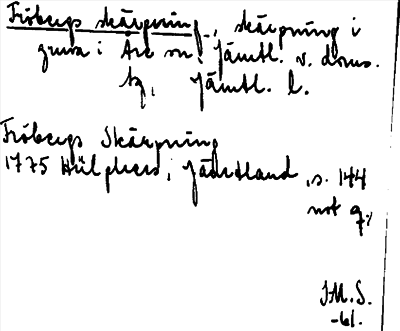 Fröbergs skärpning, skärpning i
gruva i Åre sn, Jämtl. v. doms.
tg, Jämtl. l.
Fröbergs Skärpning
1775 Hülphers, Jämtland, s. 144
not q.
J.M.S.
-61.